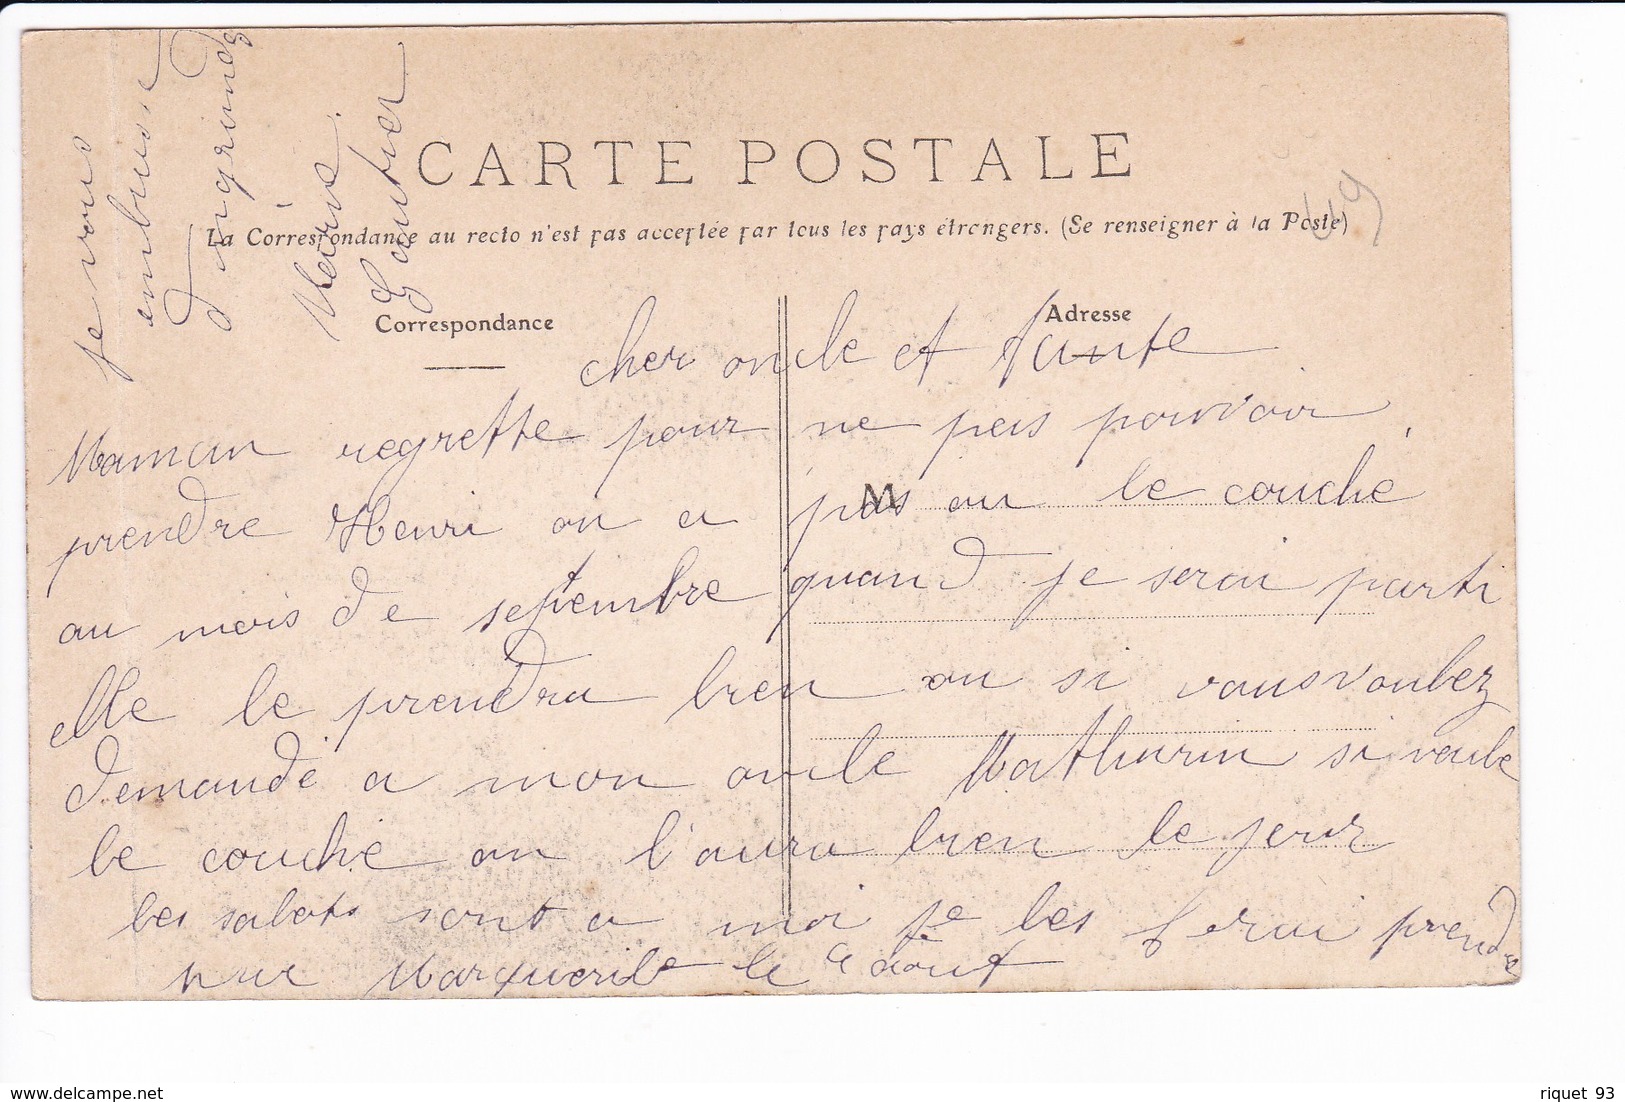 CARTE POSTALE
La Correspondance au recto n'est pas acceptée par tous les pays étrangers. (Se renseigner à la Poste)
Correspondance
Adresse
49
cher oncle et tante
Maman regrette pour ne pas pouvoir
prendre Henri on a pas ou le couché
M
au mois de septembre quand je serai parti
elle le prendra bien ou si vous voulez
demandé a mon oncle Mathurin si veule
le couché on l'aura bien le jour
les sabots sont a moi je les ferai prendre
par Marguerite le 4 aout
je vous
embrasse
Ingrandes
Marie
Gautier
riquet 93